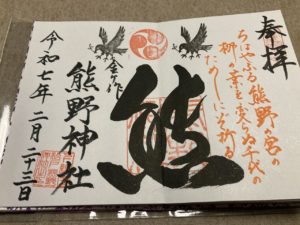 奉拝
ちはやふる熊野の宮の
梛の葉を変らぬ千代の
ためしにぞ祈る
熊
熊野神社
令和七年二月二十三日